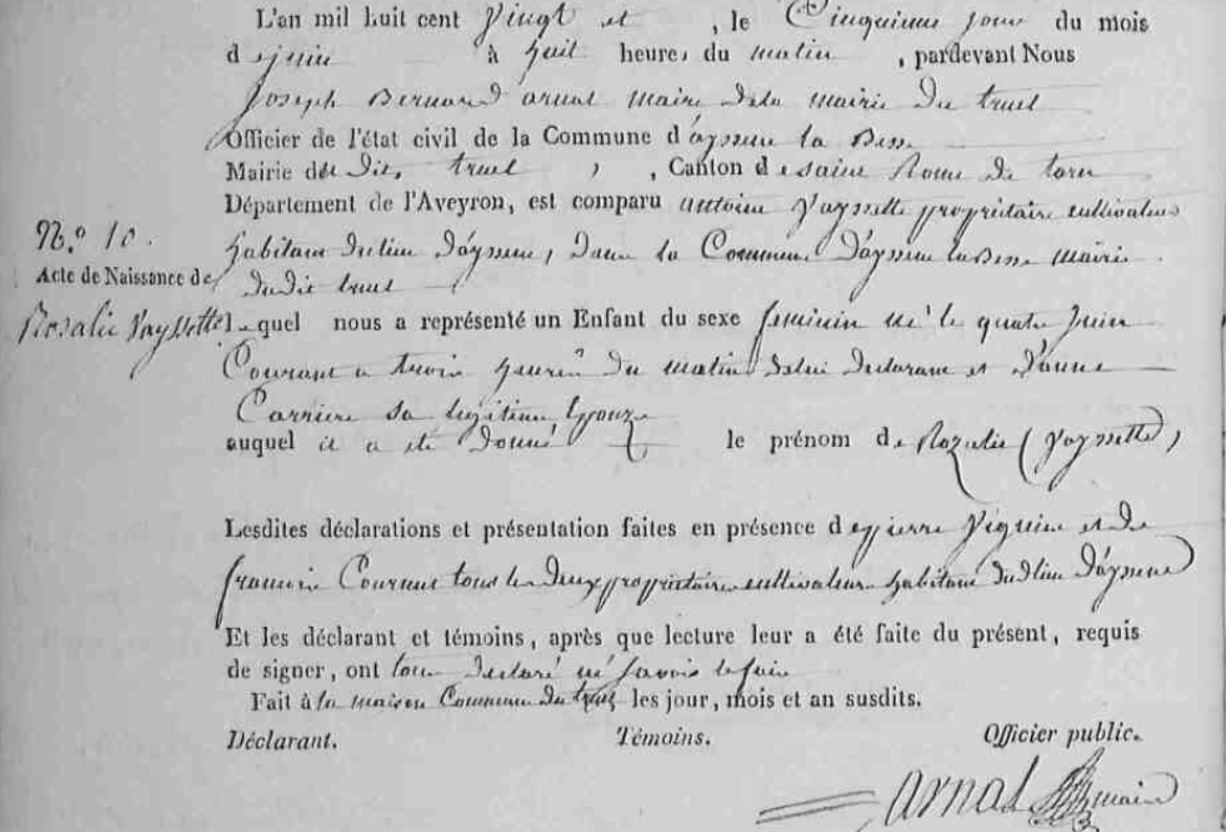 L'an mil huit cent Vingt et , le Cinquieme jour du mois
d e juin à huit heures du matin , pardevant Nous
Joseph Bernard arnal maire dela mairie Du truel
Officier de l'état civil de la Commune d'ayssene la Besse
Mairie du Dit truel , Canton de saint Rome De tarn
Département de l'Aveyron, est comparu antoine Vayssette propriétaire cultivateur
habitant Du lieu D'ayssene, Dans la Commune D'ayssene la Besse mairie
N.º 10.
Acte de Naissance de
Rosalie Vayssette
du Dit truel
lequel nous a représenté un Enfant du sexe feminin né le quatre juin
Courant a trois heures Du matin De lui Declarant et D'anne
Carriere sa legitime Epouze
auquel il a été Donné le prénom de Rozalie (Vayssette)
Lesdites déclarations et présentation faites en présence de pierre Viguier et De
francois tous les Deux propriétaires cultivateurs habitans Du Dlieu D'ayssene
Et les déclarant et témoins, après que lecture leur a été faite du présent, requis
de signer, ont tous Declaré né savoir le faire
Fait à la maison Commune Du truel les jour, mois et an susdits.
Déclarant. Témoins. Officier public.
Arnal maire